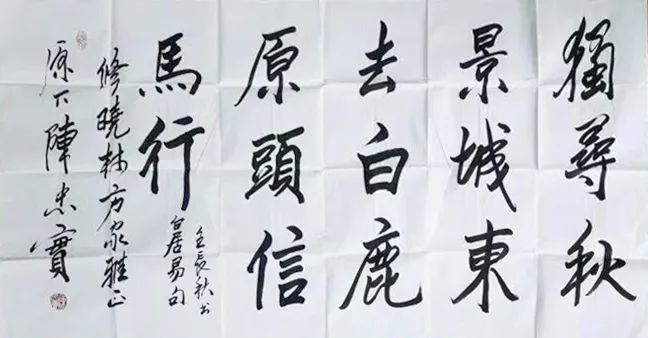 獨尋秋
景城東
去白鹿
原頭信
馬行
秋书
白居易句
修曉林方家雅正
原下陳忠實